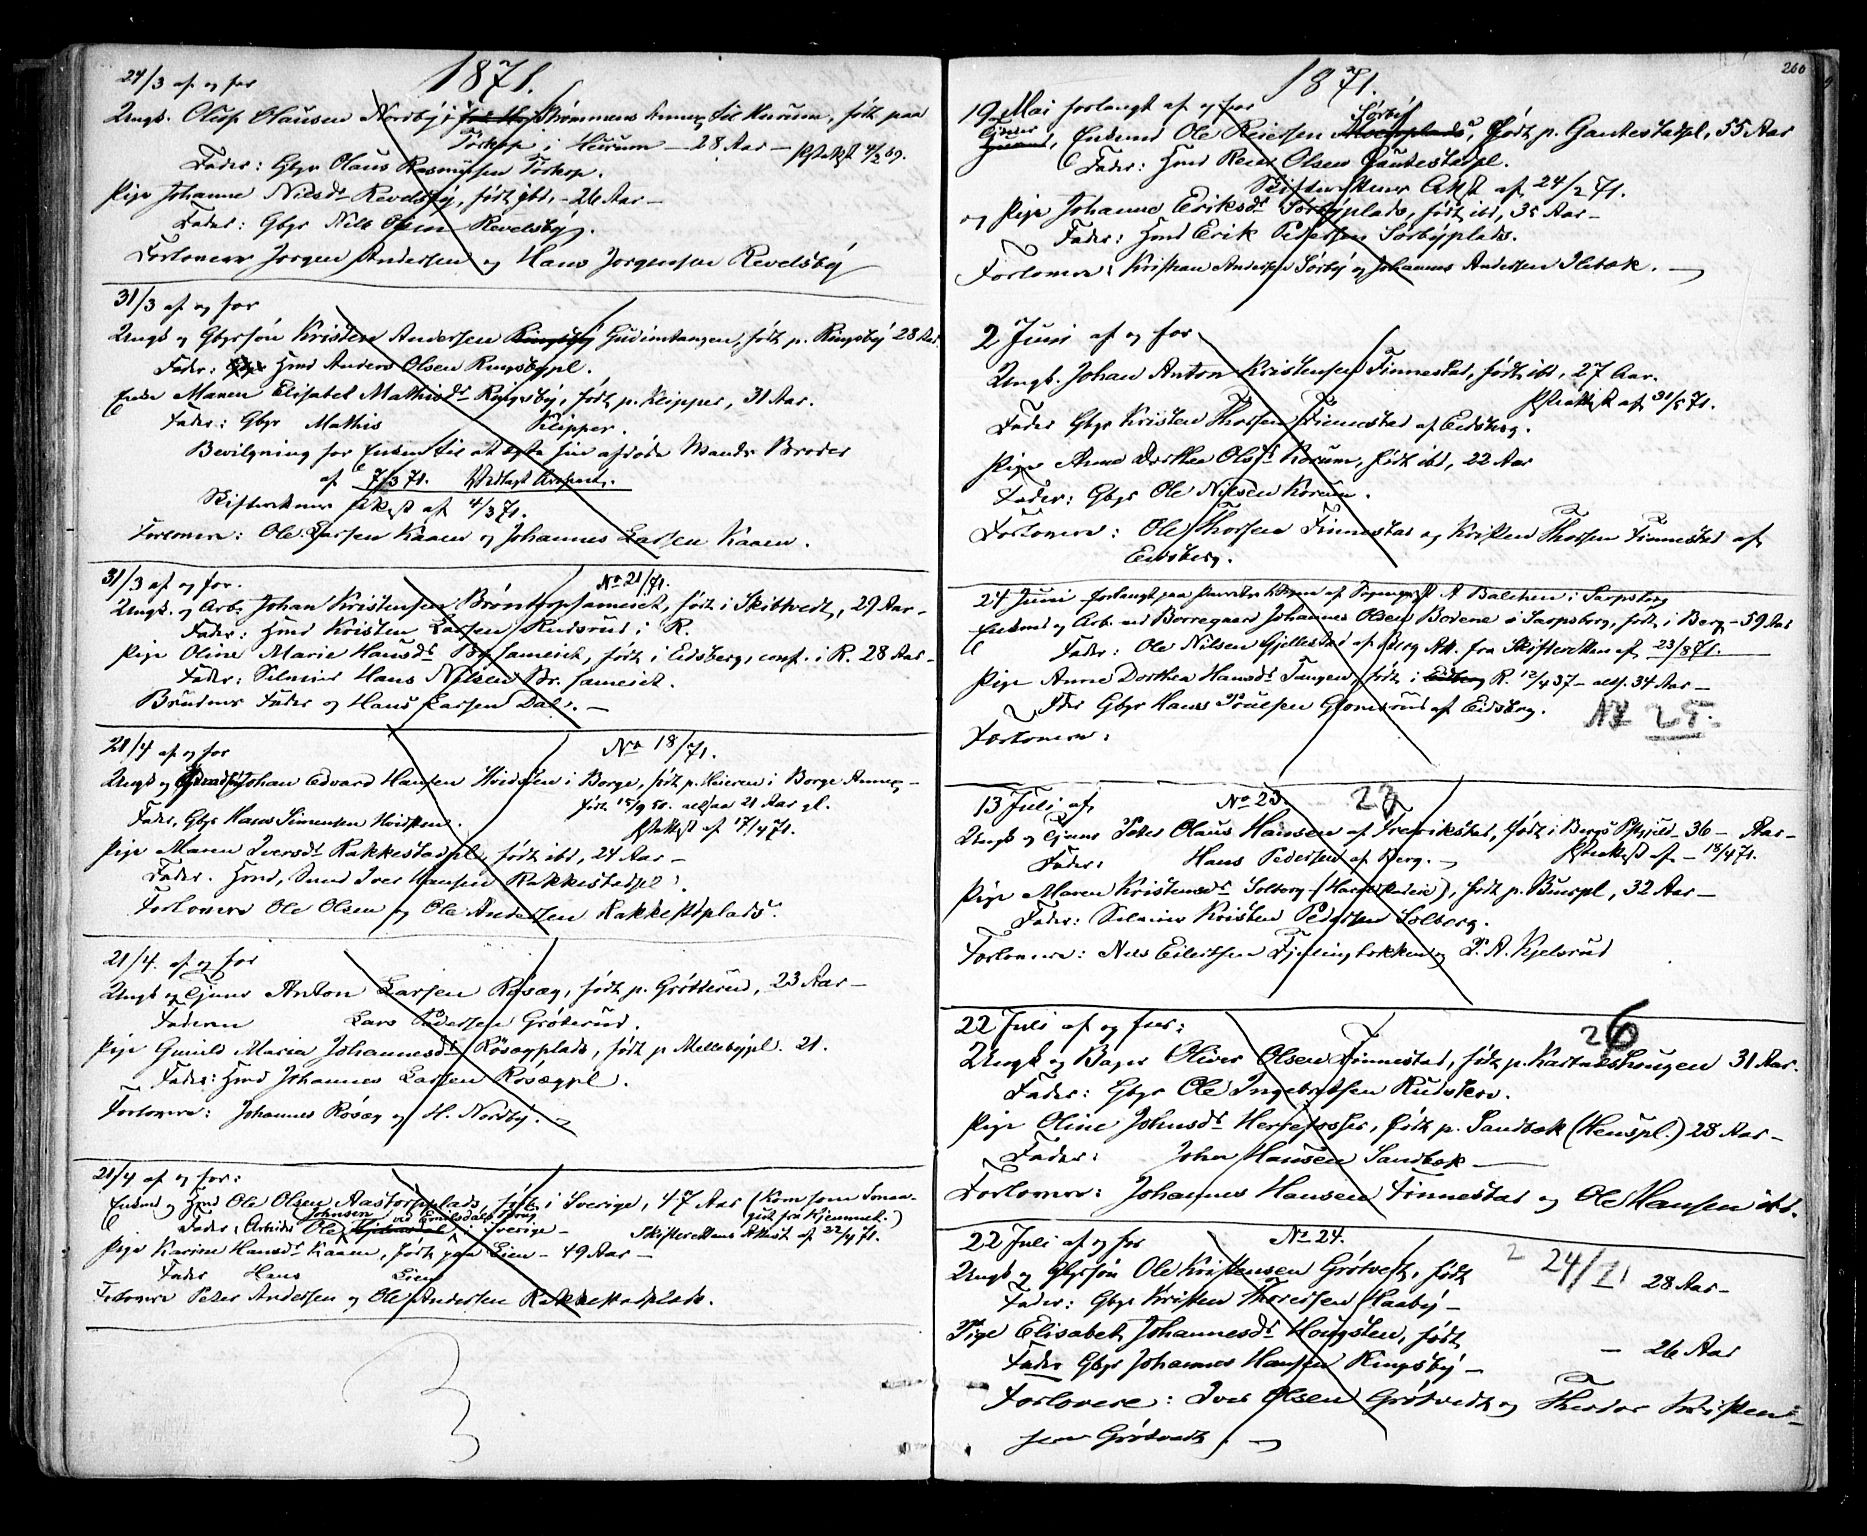 1871.
24/3 af og for
Ungk. Oluf Olausen Nordby i Strømmens Annex til Hurum, født paa
Torkop i Hurum – 28 Aar –
Fader: Gbr Olaus Rasmussen Torkop.
Pige Johanne Nilsdr Revelsby, født ibd, – 26 Aar –
Fader: Gbr Nils Olsen Revelsby.
Forlovere Jørgen Andersen og Hans Jørgensen Revelsby
31/3 af og for
Ungk og Gbrsøn Kristen Andersen Ringsby Gudimtangen, født p. Ringsby 28 Aar.
Fader: Hmd Anders Olsen Ringsbypl.
Enke Maren Elisabet Mathisdr Ringsby, født p. Klipper, 31 Aar.
Fader: Gbr Mathis Klipper.
Bevilgning for Enken til at ægte sin afdøde Mands Broder
af 7/3 71.
Skifterettens Attest af 4/3 71.
Forlovere: Ole Larsen Kaaen og Johannes Larsen Kaaen.
31/3 af og for. No 21/71.
Ungk. og Arb. Johan Kristensen Brøntorpsameiet, født i Skibtvedt, 29 Aar –
Fader: Hmd Kristen Larsen Rudsrud i R.
Pige Oline Marie Hansdr Br. sameiet, født i Eidsberg, conf. i R. 28 Aar –
Fader: Selveier Hans Nilsen Br. sameiet.
Brudens Fader og Hans Larsen Dal. –
21/4 af og for No 18/71.
Ungk og Johan Edvard Hansen Hvidsten i Borge, født p. Heieren i Borge Annex –
født 15/9 50. altsaa 21 Aar gl.
Fader, Gbr Hans Simensen Hvidsten. Attest af 17/4 71.
Pige Maren Iversdr Rakkestadpl, født ibd, 24 Aar –
Fader. Hmd, Smed Iver Hansen Rakkestadpl.
Forlovere Ole Olsen og Ole Andersen Rakkestdplads.
21/4. af og for
Ungk og Tjener Anton Larsen Røsæg, født p. Grøtterud, 23 Aar –
Faderen Lars Pedersen Grøterud.
Pige Gunild Maria Johannesdr Røsægplads, født p Mellebypl. 21.
Fader: Hmd Johannes Larsen Røsægpl.
Forlovere: Johannes Røsæg og H. Nordby.
21/4 af og for:
Enkmd og Hmd Ole Olsen Aastorpplads, født i Sverige, 47 Aar (Kom som Smaa-
gut fra Hjemmet.)
Fader: Arbeider Ole Johnsen i Sverige – Skifterettens Attest af 22/4 71.
Pige Karine Hansdr Kaaen, født paa Lien – 49 Aar –
Fader Hans Lien
Forlovere Peter Andersen og Ole Andersen Rakkestadplads.
3
260
1871.
19 Mai forlangt af og for
Enkemd Ole Reiersen Sørby, født p. Gautestadpl, 55 Aar
Fader: Hmd Reier Olsen Gautestadpl.
Skifterettens Attst af 24/2 71.
og Pige Johanne Eriksdr Sørbyplads, født ibd, 35 Aar –
Fader: Hmd Erik Pedersen Sørbyplads.
Forlovere: Kristian Andersen Sørby og Johannes Andersen Ilebæk.
2 Juni af og for
Ungk. Johan Anton Kristensen Finnestad, født ibd, 27 Aar.
Attest af 31/5 71.
Fader Gbr Kristen Thorsen Finnestad af Eidsberg.
Pige Anne Dorthea Olsdr Korum, født ibd, 22 Aar
Fader: Gbr Ole Nilsen Korum.
Forlovere: Ole Thorsen Finnestad og Kristen Thorsen Finnestad af
Eidsberg.
24 Juni forlangt paa af A Balchen i Sarpsborg
Enkmd og Arb. ved Borregaard Johannes Olsen Bodene i Sarpsborg, født i Berg – 59 Aar
Fader: Ole Nilsen Gjellestad af Berg Att. fra Skifteretten af 23/8 71.
Pige Anne Dorthea Hansdr Tangen, født i R. 12/4 37 – alts. 34 Aar –
Fder Gbr Hans Truelsen Glomsrud af Eidsberg. No 25.
Forlovere:
13 Juli af No 23. 23
Ungk og Tjener Peter Olaus Hansen af Fredrikstad, født i Bergs Pgjeld – 36 – Aar –
Fader: Hans Pedersen af Berg. – Attest af – 18/4 71.
Pige Maren Kristensdr Solberg, født p. Buerpl, 32 Aar –
Fader: Selveier Kristen Pedersen Solberg.
Forlovere: Nils Eilertsen og P. A. Kjelsrud
22 Juli af og for: 26
Ungk og Bager Oliver Olsen Finnestad, født p. Kartneshougen 31 Aar.
Fader: Gbr Ole Ingebretsen Rudsten.
Pige Oline Johnsdr Herrefosser, født p. Sandbæk (Henspl.) 28 Aar –
Fader: John Hansen Sandbæk –
Forlovere: Johannes Hansen Finnestad og Ole Hansen ibd.
22 Juli af og for No 24. 24/71
Ungk og Gbrsøn Ole Kristensen Grøtvedt, født 28 Aar –
Fader: Gbr Kristen Thoresen Haaby –
Pige Elisabet Johannesdr Hougsten, født – 26 Aar
Fader Gbr Johannes Hansen Ringsby –
Forlovere: Iver Olsen Grøtvedt og Theodor Kristen-
sen Grøtvedt.